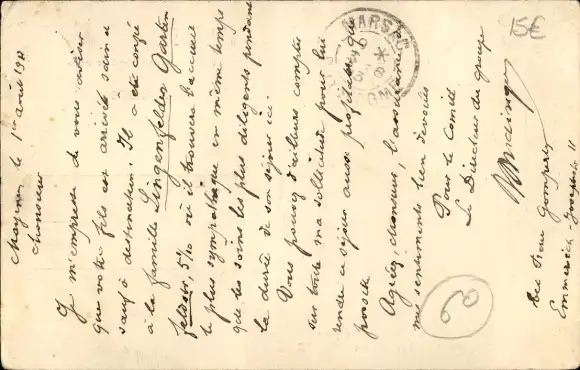 Mayence le 1er août 19
Monsieur
Je m'empresse de vous aviser
que votre fils est arrivé sain et
sauf à destination. Il a été confié
à la famille Lingenfelder Garten
feldstr, 5/10 où il trouvera l'accueil
le plus sympathique en même temps
que les soins les plus diligents pendant
la durée de son séjour ici.
Vous pouvez d'ailleurs compter
sur toute ma sollicitude pour lui
rendre ce séjour aussi profitable que
possible
Agréez, Monsieur, l'assurance de
mes sentiments bien dévoués
Pour le Comité
Le Directeur du groupe
bei Frau
Josefstr. 11
MARSAC
15€